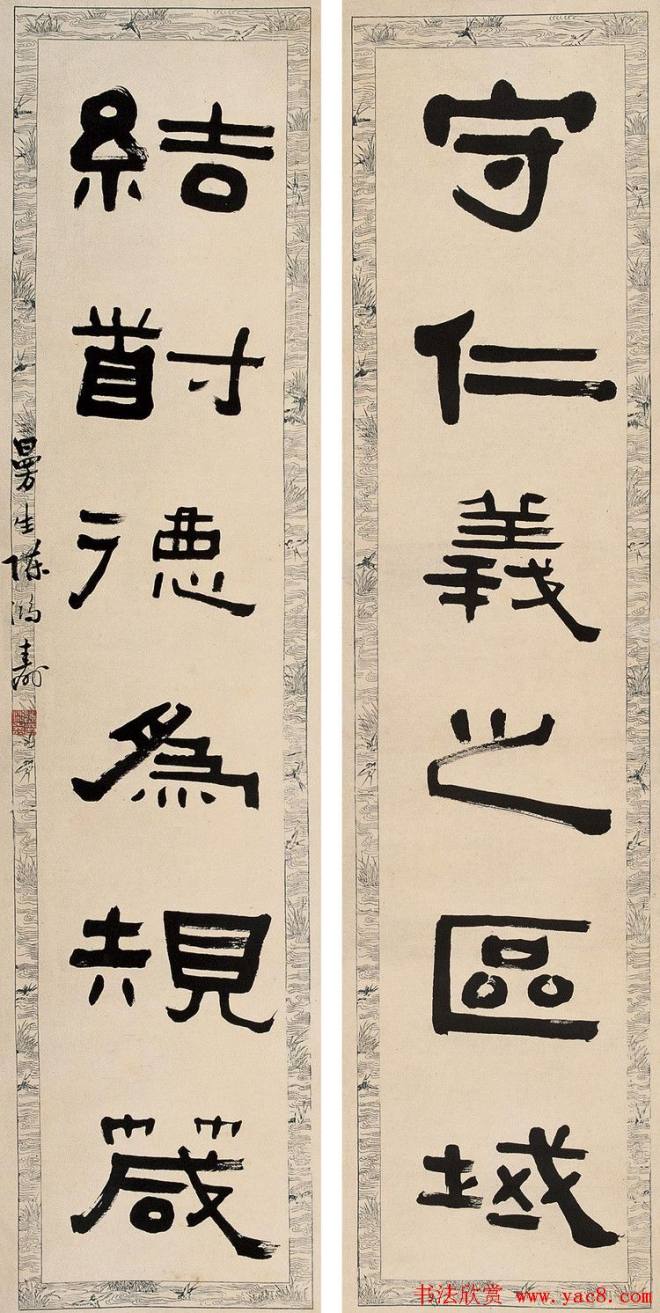 守仁義之區域
結道德為規箴
曼生陳鴻壽
书法欣赏 www.yac8.com